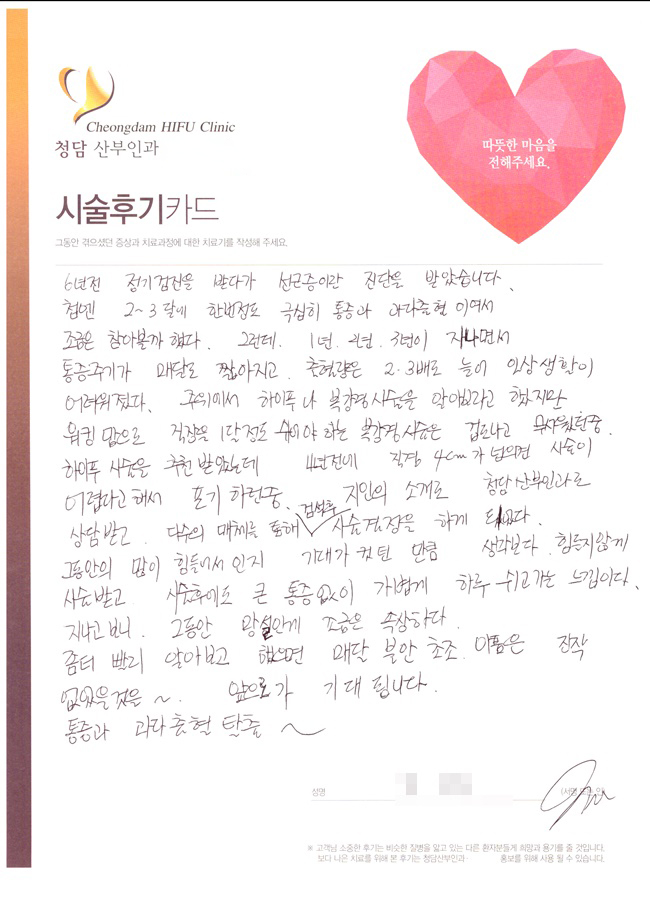 Cheongdam HIFU Clinic
청담 산부인과
따뜻한 마음을
전해주세요.
시술후기카드
그동안 겪으셨던 증상과 치료과정에 대한 치료기를 작성해 주세요.
6년전 정기검진을 받다가 선근증이란 진단을 받았습니다.
첨엔 2~3달에 한번정도 극심히 통증과 과다출혈 이여서
조금은 참아볼까 했다. 그런데. 1년. 2년. 3년이 지나면서
통증주기가 매달로 짧아지고. 출혈량은 2.3배로 늘어 일상생활이
어려워졌다. 주위에서 하이푸나 복강경시술을 알아보라고 했지만
워킹맘으로 직장을 1달정도 쉬어야 하는 복강경시술은 겁도나고 무서웠던중.
하이푸 시술을 추천받았는데 4년전에 직경 4cm가 넘으면 시술이
어렵다고 해서 포기 하려던중. 지인의 소개로 청담산부인과로
상담받고. 다수의 매체를 통해 검색후 시술결정을 하게 되었다.
그동안의 맘이 힘들어서 인지 기대가 컸던 만큼 생각보다. 힘들지않게
시술받고. 시술후에도 큰 통증없이 가볍게 하루 쉬고가는 느낌이다.
지나고 보니. 그동안 망설인게 조금은 속상하다.
좀더 빨리 알아보고 했으면 매달 불안 초조. 아픔은 진작
없었을것은 ~. 앞으로가 기대 됩니다.
통증과 과다출혈 탈출 ~
성명
(서명 또는 인)
※ 고객님 소중한 후기는 비슷한 질병을 앓고 있는 다른 환자분들게 희망과 용기를 줄 것입니다.
보다 나은 치료를 위해 본 후기는 청담산부인과· 홍보를 위해 사용 될 수 있습니다.